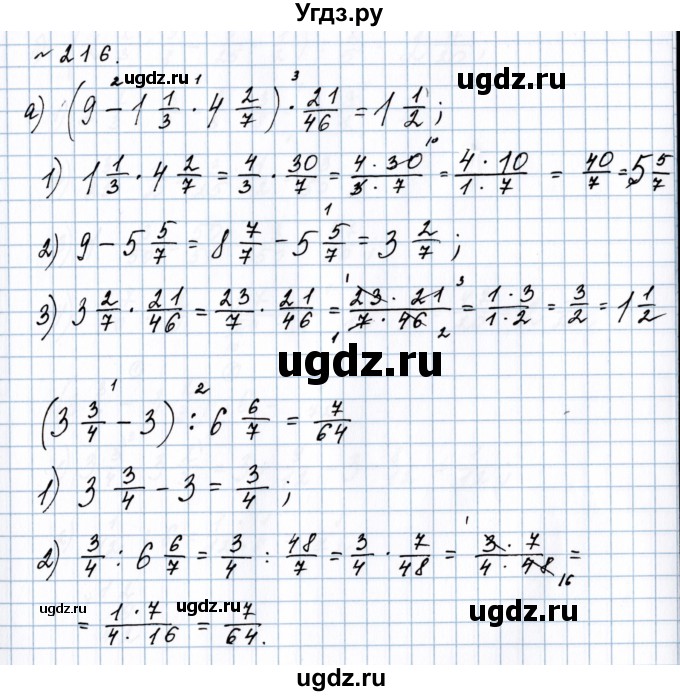 Угдз.ру
№ 216.
ugdz.ru ugdz.ru ugdz.ru
а) (9 - 1 1/3 · 4 2/7) · 21/46 = 1 1/2;
1) 1 1/3 · 4 2/7 = 4/3 · 30/7 = 4 · 30/3 · 7 = 4 · 10/1 · 7 = 40/7 = 5 5/7
ugdz.ru ugdz.ru
2) 9 - 5 5/7 = 8 7/7 - 5 5/7 = 3 2/7;
3) 3 2/7 · 21/46 = 23/7 · 21/46 = 23 · 21/7 · 46 = 1 · 3/1 · 2 = 3/2 = 1 1/2
ugdz.ru ugdz.ru ugdz.ru
(3 3/4 - 3) : 6 6/7 = 7/64
1) 3 3/4 - 3 = 3/4;
ugdz.ru ugdz.ru
2) 3/4 : 6 6/7 = 3/4 : 48/7 = 3/4 · 7/48 = 3 · 7/4 · 48 =
ugdz.ru ugdz.ru ugdz.ru
= 1 · 7/4 · 16 = 7/64.
ugdz.ru